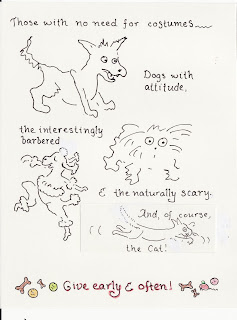 Those with no need for costumes
Dogs with
attitude,
the interestingly
barbered
& the naturally scary.
And, of course,
the Cat!
Give early & often!